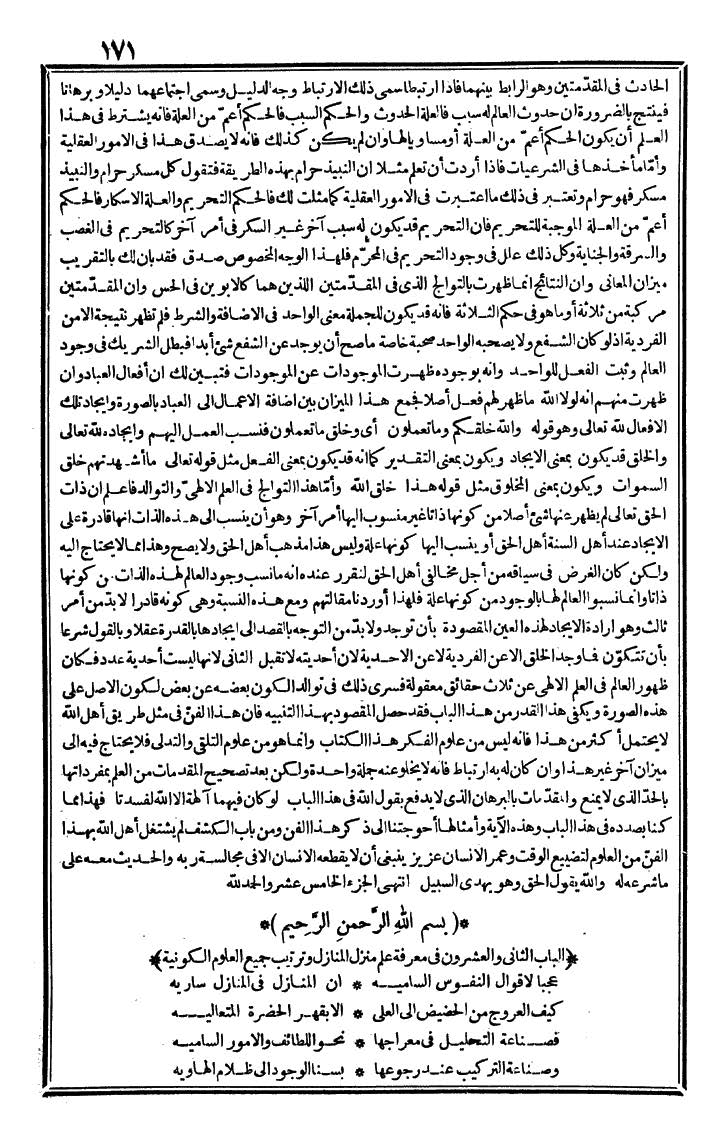 ١٧١
الحادث فى المقدّمتين وهو الرابط بينهما فاذا ارتبطا سمى ذلك الارتباط وجه الدليل وسمى اجتماعهما دليلا وبرهانا
فينتج بالضرورة ان حدوث العالم له سبب فالعلة الحدوث والحكم السبب فالحكم أعمّ من العلة فانه يشترط فى هذا
العلم أن يكون الحكم أعمّ من العلة أو مساويا لها وان لم يكن كذلك فانه لا يصدق هذا فى الامور العقلية
وأمّا مأخذها فى الشرعيات فاذا أردت أن تعلم مثلا ان النبيذ حرام بهذه الطريقة فتقول كل مسكر حرام والنبيذ
مسكر فهو حرام وتعتبر فى ذلك ما اعتبرت فى الامور العقلية كما مثلت لك فالحكم التحريم والعلة الاسكار فالحكم
أعمّ من العلة الموجبة للتحريم فان التحريم قد يكون له سبب آخر غير السكر فى أمر آخر كالتحريم فى الغصب
والسرقة والجناية وكل ذلك علل فى وجود التحريم فى المحرّم فلهذا الوجه المخصوص صدق فقد بان لك بالتقريب
ميزان المعانى وان النتائج انما ظهرت بالتوالج الذى فى المقدّمتين اللذين هما كالابوين فى الحس وان المقدّمتين
مركبة من ثلاثة أو ما هو فى حكم الثلاثة فانه قد يكون للجملة معنى الواحد فى الاضافة والشرط فلم تظهر نتيجة الا من
الفردية اذ لو كان الشفع ولا يصحبه الواحد صحبة خاصة ما صح أن يوجد عن الشفع شئ أبدا فبطل الشريك فى وجود
العالم وثبت الفعل للواحد وانه بوجوده ظهرت الموجودات عن الموجودات فتبين لك ان أفعال العباد وان
ظهرت منهم انه لولا الله ما ظهر لهم فعل أصلا فجمع هذا الميزان بين اضافة الاعمال الى العباد بالصورة وايجاد تلك
الافعال لله تعالى وهو قوله والله خلقكم وما تعملون أى وخلق ما تعملون فنسب العمل اليهم وايجاده لله تعالى
والخلق قد يكون بمعنى الايجاد ويكون بمعنى التقدير كما انه قد يكون بمعنى الفعل مثل قوله تعالى ما أشهدتهم خلق
السموات ويكون بمعنى المخلوق مثل قوله هذا خلق الله وأمّا هذا التوالج فى العلم الالهىّ والتوالد فاعلم ان ذات
الحق تعالى لم يظهر عنها شئ أصلا من كونها ذاتا غير منسوب اليها أمر آخر وهو أن ينسب الى هذه الذات انها قادرة على
الايجاد عند أهل السنة أهل الحق أو ينسب اليها كونها علة وليس هذا مذهب أهل الحق ولا يصح وهذا مما لا يحتاج اليه
ولكن كان الغرض فى سياقه من أجل مخالفى أهل الحق لنقرر عنده انه ما نسب وجود العالم لهذه الذات من كونها
ذاتا وانما نسبوا العالم لها بالوجود من كونها علة فلهذا أوردنا مقالتهم ومع هذه النسبة وهى كونه قادرا لا بدّ من أمر
ثالث وهو ارادة الايجاد لهذه العين المقصودة بأن توجد ولا بدّ من التوجه بالقصد الى ايجادها بالقدرة عقلا وبالقول شرعا
بأن تتكوّن فما وجد الخلق الا عن الفردية لا عن الاحدية لان أحديته لا تقبل الثانى لانها ليست أحدية عدد فكان
ظهور العالم فى العلم الالهى عن ثلاث حقائق معقولة فسرى ذلك فى توالد الكون بعضه عن بعض لكون الاصل على
هذه الصورة ويكفى هذا القدر من هذا الباب فقد حصل المقصود بهذا التنبيه فان هذا الفنّ فى مثل طريق أهل الله
لا يحتمل أكثر من هذا فانه ليس من علوم الفكر هذا الكتاب وانما هو من علوم التلقى والتدلى فلا يحتاج فيه الى
ميزان آخر غير هذا وان كان له به ارتباط فانه لا يخلو عنه جملة واحدة ولكن بعد تصحيح المقدمات من العلم بمفرداتها
بالحدّ الذى لا يمنع والمقدّمات بالبرهان الذى لا يدفع بقول الله فى هذا الباب لو كان فيهما آلهة الا الله لفسدتا فهذا مما
كنا بصدده فى هذا الباب وهذه الآية وأمثالها أحوجتنا الى ذكر هذا الفن ومن باب الكشف لم يشتغل أهل الله بهذا
الفنّ من العلوم لتضييع الوقت وعمر الانسان عزيز ينبغى أن لا يقطعه الانسان الا فى مجالسة ربه والحديث معه على
ما شرعه له والله يقول الحق وهو يهدى السبيل انتهى الجزء الخامس عشر والحمد لله
*( بسم الله الرَّحمن الرَّحيم )*
﴿الباب الثانى والعشرون فى معرفة علم منزل المنازل وترتيب جميع العلوم الكونية﴾
عجبا لاقوال النفوس الساميه * ان المنازل فى المنازل ساريه
كيف العروج من الحضيض الى العلى * الا بقهر الحضرة المتعاليه
فصناعة التحليل فى معراجها * نحو اللطائف والامور الساميه
وصناعة التركيب عند رجوعها * بسنا الوجود الى ظلام الهاويه